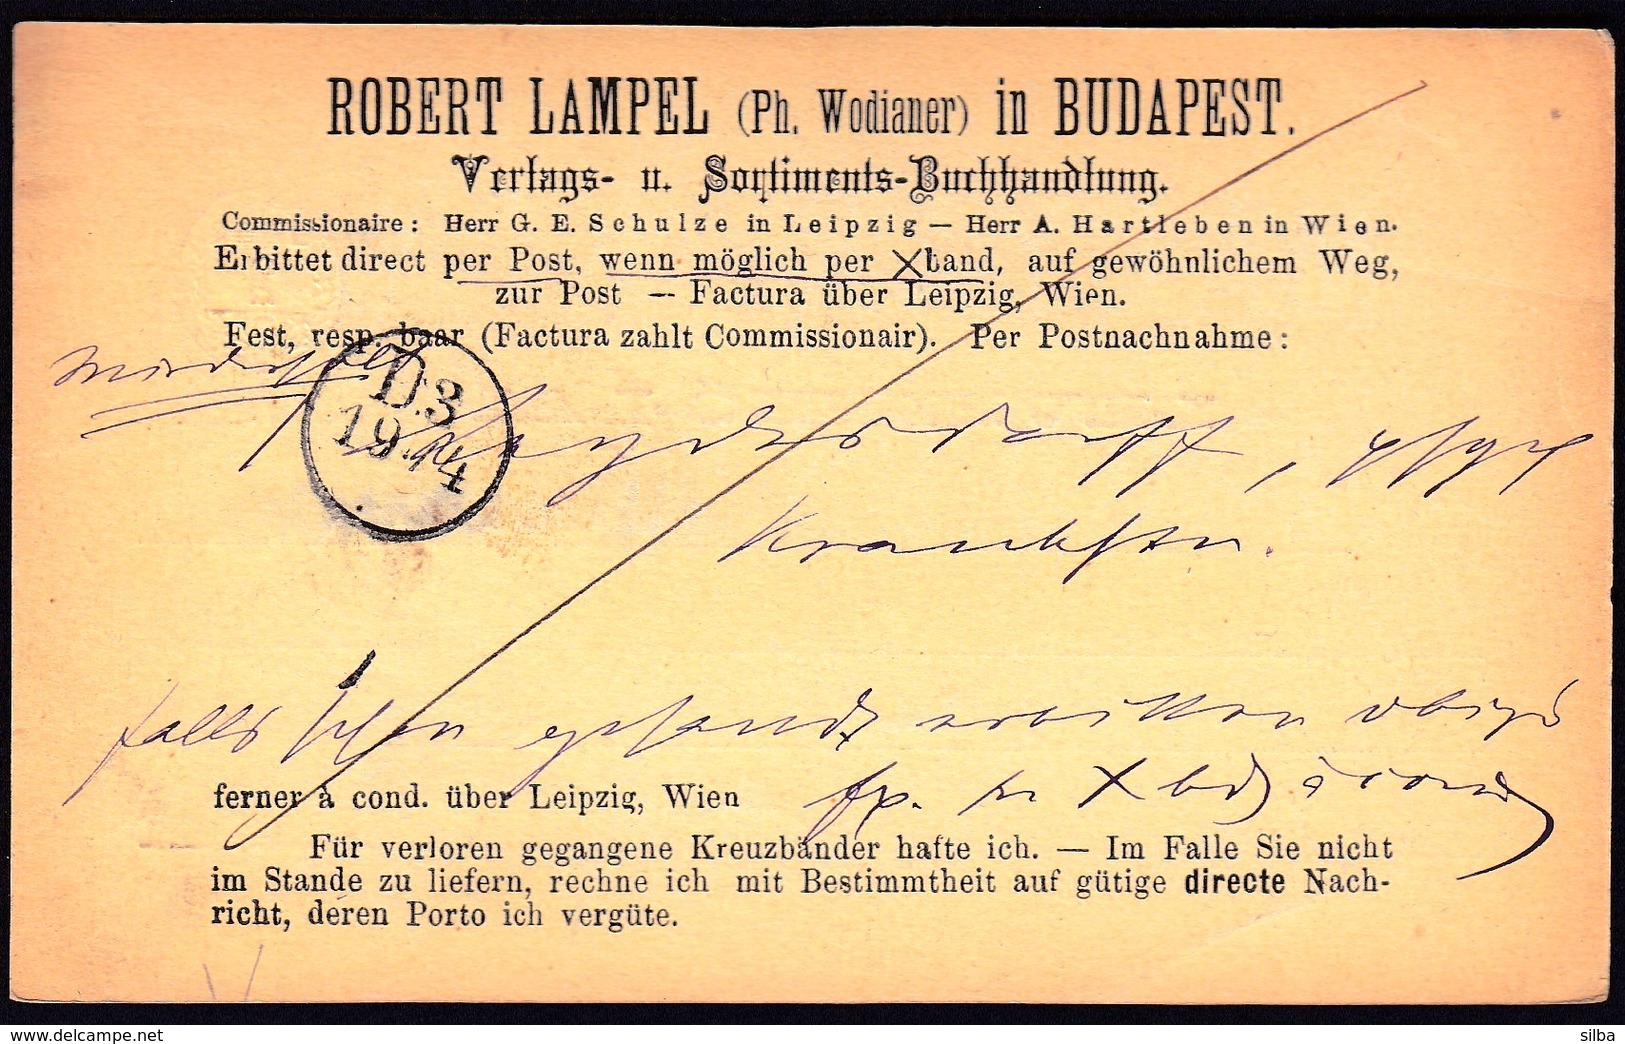 ROBERT LAMPEL (Ph. Wodianer) in BUDAPEST.
Verlags- u. Sortiments-Buchhandlung.
Commissionaire: Herr G. E. Schulze in Leipzig — Herr A. Hartleben in Wien.
Erbittet direct per Post, wenn möglich per Xband, auf gewöhnlichem Weg,
zur Post — Factura über Leipzig, Wien.
Fest, resp. baar (Factura zahlt Commissionair). Per Postnachnahme:
wiederholt
D.3
19 4
falls schon gesandt
ferner à cond. über Leipzig, Wien
Für verloren gegangene Kreuzbänder hafte ich. — Im Falle Sie nicht
im Stande zu liefern, rechne ich mit Bestimmtheit auf gütige directe Nach-
richt, deren Porto ich vergüte.
www.delcampe.net
silba